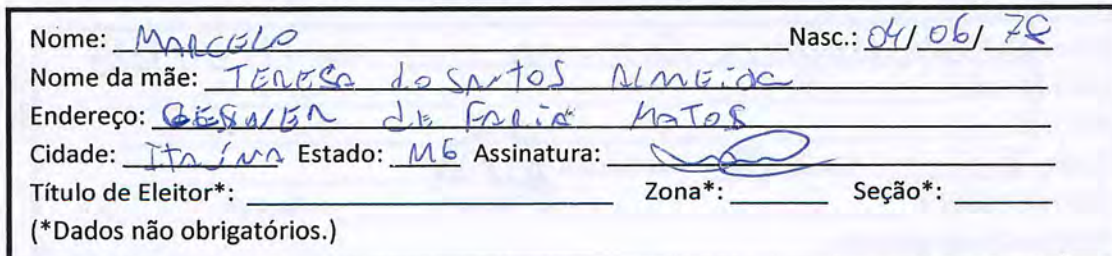 Nome: MARCELO Nasc.: 04/06/78
Nome da mãe: TERESA do SANTOS ALMEIDA
Endereço: DE FARIA MATOS
Cidade: Estado: MG Assinatura:
Título de Eleitor*: Zona*: Seção*:
(*Dados não obrigatórios.)